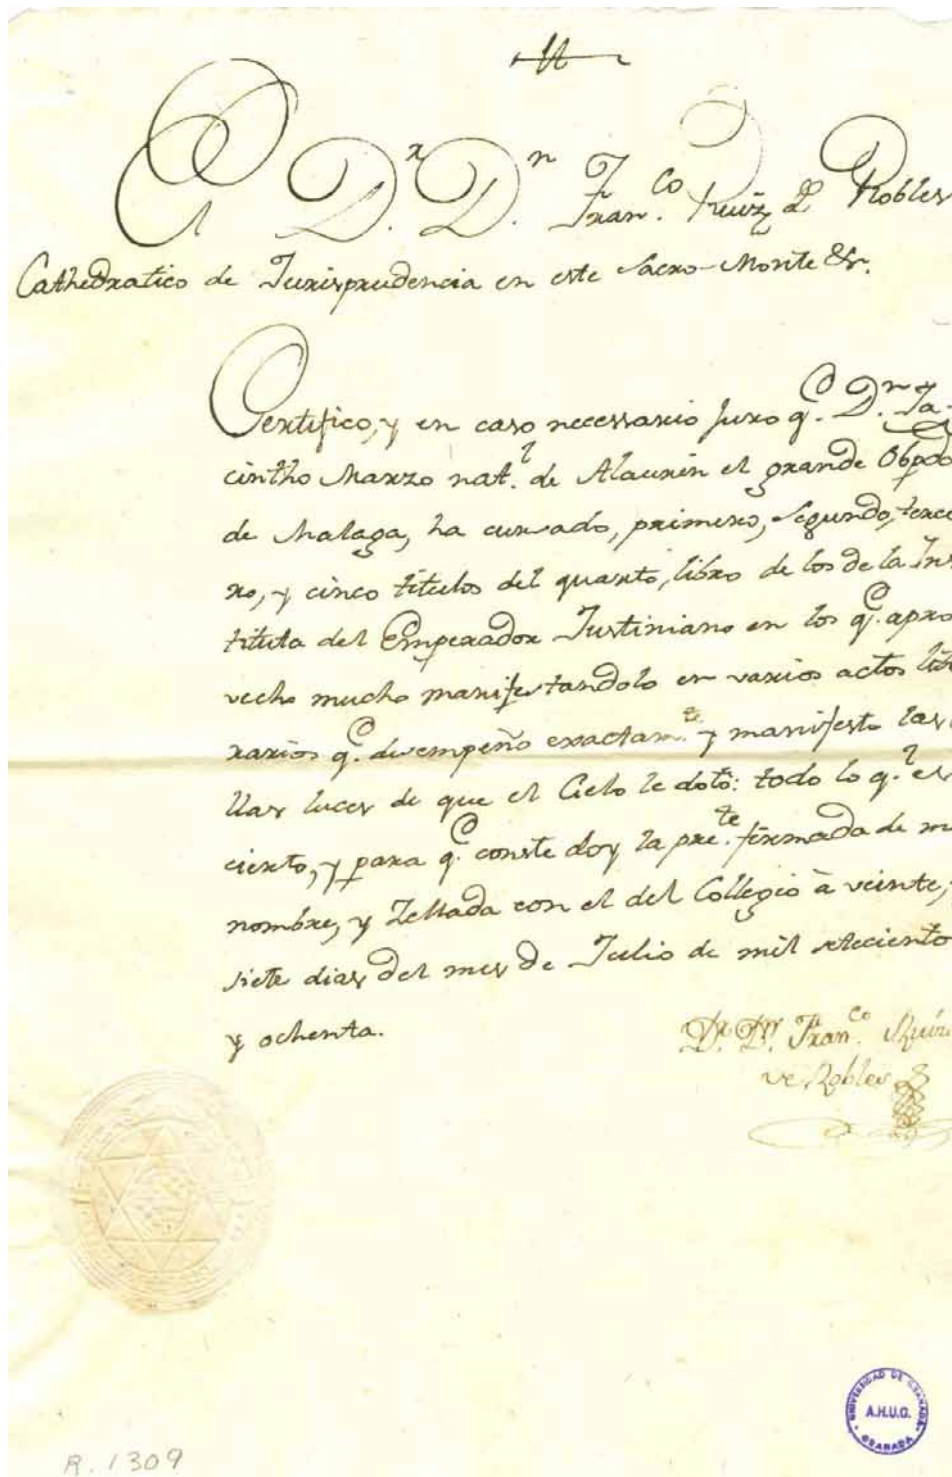 El D.r D.n Fran.co Ruiz de Robles
Cathedratico de Jurisprudencia en este Sacro-Monte &c.
Certifico, y en caso necessario juro q.e D.n Ja-
cintho Marzo nat.l de Alaurin el grande Obpdo
de Malaga, ha cursado, primero, segundo, terce
ro, y cinco titulos del quarto, libro de los de la Ins
tituta del Emperador Justiniano en los q.e apro
vecho mucho manifestandolo en varios actos lite
rarios q.e desempeño exactam.te y manifesto las
llas luces de que el Cielo le dotò: todo lo q.l es
cierto, y para q.e conste doy la pre.te firmada de mi
nombre, y Zellada con el del Collegio à veinte, y
siete dias del mes de Julio de mil seteciento
y ochenta.
D.r D.n Fran.co Ruiz
de Robles
UNIVERSIDAD DE GRANADA
A.H.U.G.
GRANADA
R. 1309